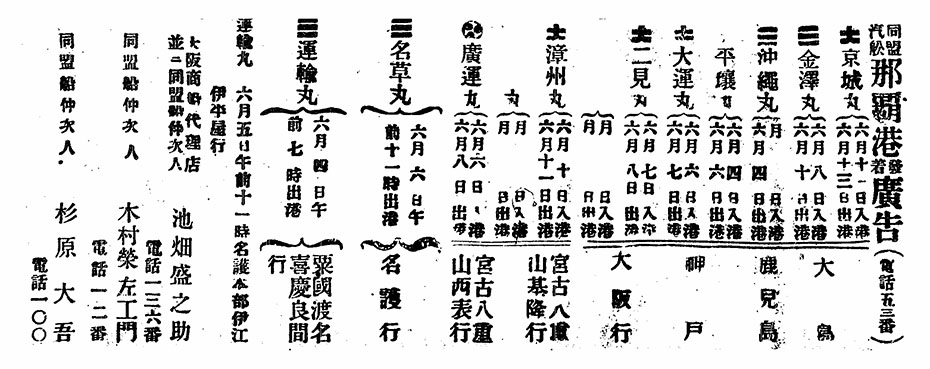 同盟汽船那覇港發著廣告(電話五三番)
京城丸 六月十一日入港 六月十三日出港
金澤丸 六月八日入港 六月十日出港
沖繩丸 月 日入港 六月四日出港
平壤丸 六月四日入港 六月六日出港
大運丸 六月六日入港 六月七日出港
二見丸 六月七日入港 六月八日出港
月 日入港 月 日出港
大島 鹿兒島 神戸 大阪行
漳州丸 六月十日入港 六月十一日出港
丸 月 日入港 月 日出港
宮古八重山基隆行
廣運丸 六月六日入港 六月八日出港
宮古八重山西表行
名草丸 六月六日午前十一時出港 名護行
運輸丸 六月四日午前七時出港 粟國渡名喜慶良間行
運輸丸 六月五日午前十一時名護本部伊江伊平屋行
大阪商船代理店
並ニ同盟船仲次人 池畑盛之助
電話一三六番
同盟船仲次人 木村榮左工門
電話一二番
同盟船仲次人 杉原大吾
電話一〇〇